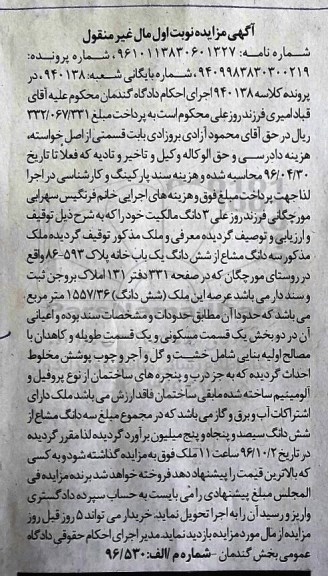 آگهی مزایده نوبت اول مال غیر منقول
شماره نامه: ۹۶۱۰۱۱۳۸۳۰۶۰۱۳۲۷، شماره پرونده:
۹۴۰۹۹۸۳۸۳۰۳۰۰۲۱۹، شماره بایگانی شعبه: ۹۴۰۱۳۸، در
پرونده کلاسه ۹۴۰۱۳۸ اجرای احکام دادگاه گندمان محکوم علیه آقای
قباد امیری فرزند روزعلی محکوم است به پرداخت مبلغ ۳۳۲/۰۶۷/۳۳۱
ریال در حق آقای محمود آزادی بروزادی بابت قسمتی از اصل خواسته،
هزینه دادرسی و حق الوکاله وکیل و تاخیر و تادیه که فعلا تا تاریخ
۹۶/۰۴/۳۰ محاسبه شده و هزینه سند پارکینگ و کارشناسی در اجرا
لذا جهت پرداخت مبلغ فوق و هزینه های اجرایی خانم فرنگیس سهرابی
مورچگانی فرزند روز علی ۳ دانگ مالکیت خود را که به شرح ذیل توقیف
و ارزیابی و توصیف گردیده معرفی و ملک مذکور توقیف گردیده ملک
مذکور سه دانگ مشاع از شش دانگ یک باب خانه پلاک ۵۹۳-۸۶ واقع
در روستای مورچگان که در صفحه ۳۳۱ دفتر ۱۳۱ املاک بروجن ثبت
و سند دار می باشد عرصه این ملک (شش دانگ) ۱۵۵۷/۳۶ متر مربع
می باشد که حدودا آن مطابق حدودات و مشخصات سند بوده و اعیانی
آن در دو بخش یک قسمت مسکونی و یک قسمت طویله و کاهدان با
مصالح اولیه بنایی شامل خشت و گل و آجر و چوب پوشش مخلوط
احداث گردیده که به جز درب و پنجره های ساختمان از نوع پروفیل و
آلومینیم ساخته شده مابقی ساختمان فاقد ارزش می باشد ملک دارای
اشتراکات آب و برق و گاز می باشد که در مجموع مبلغ سه دانگ مشاع از
شش دانگ سیصد و پنجاه و پنج میلیون برآورد گردیده لذا مقرر گردیده
در تاریخ ۹۶/۱۰/۲ ساعت ۱۱ ملک فوق به مزایده گذاشته شود و به کسی
که بالاترین قیمت را پیشنهاد دهد فروخته خواهد شد. برنده مزایده فی
المجلس مبلغ پیشنهادی را می بایست به حساب سپرده دادگستری
واریز و رسید آن را به اجرا تحویل نماید. خریدار می تواند ۵ روز قبل روز
مزایده از مال مورد مزایده بازدید نماید. مدیر اجرای احکام حقوقی دادگاه
عمومی بخش گندمان - شماره م / الف: ۹۶/۵۳۰